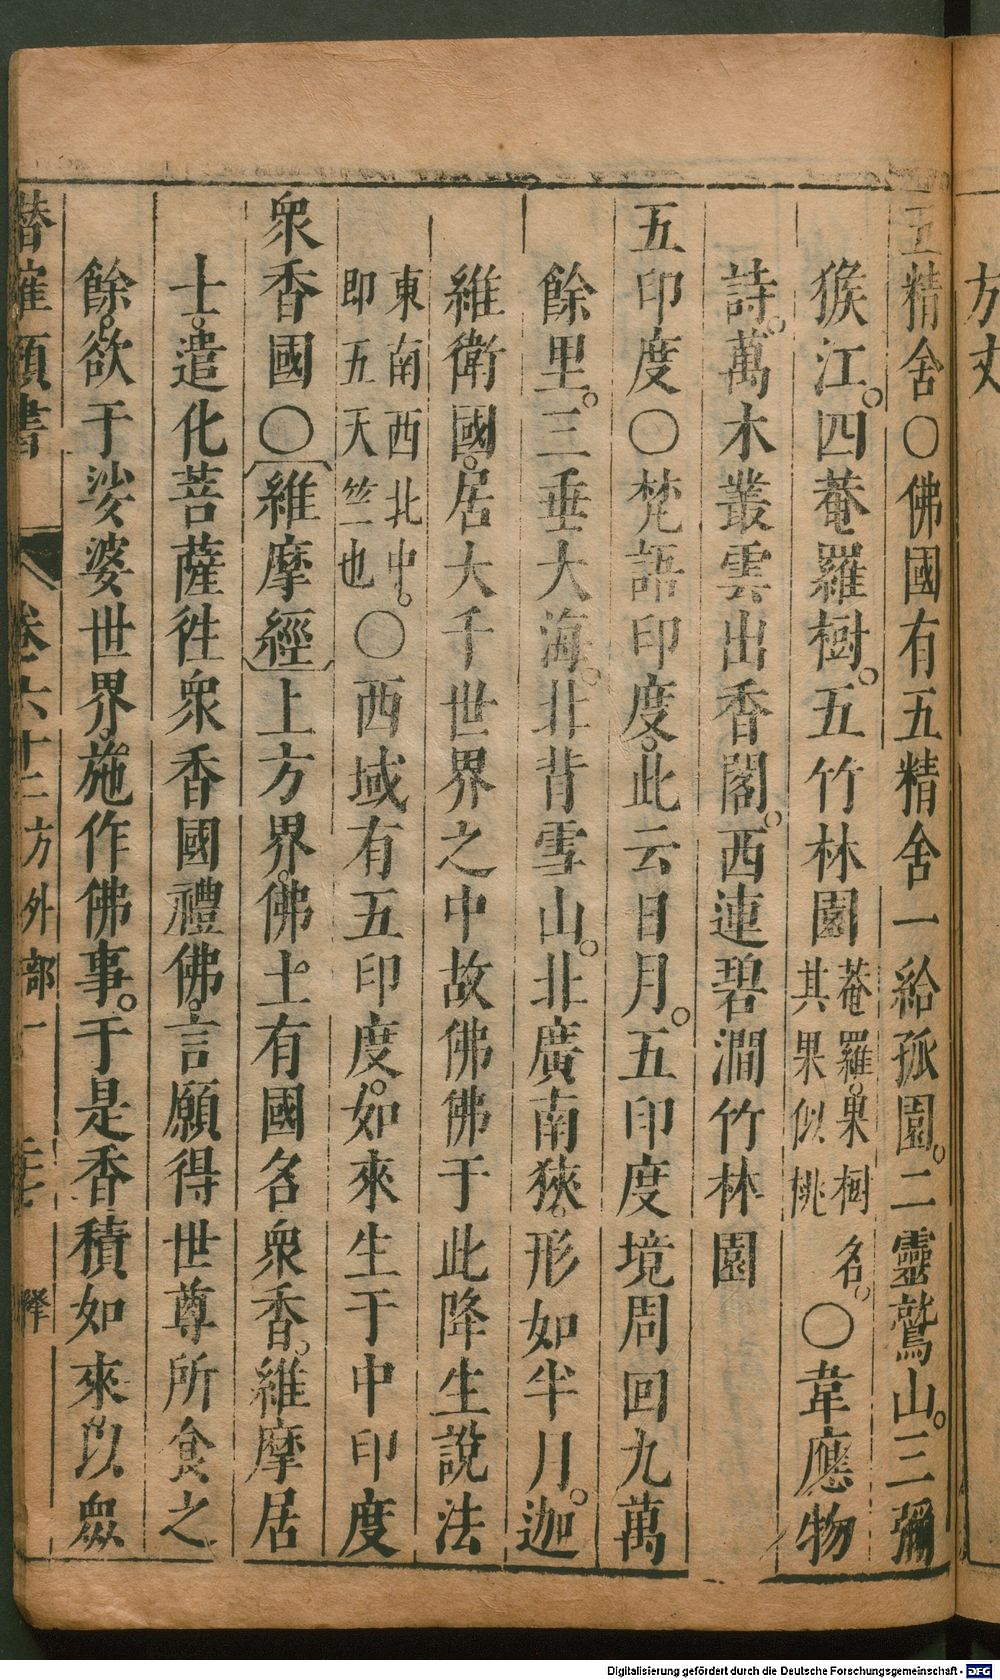 方丈
五精舍〇佛國有五精舍一給孤園。二靈鷲山。三彌
猴江。四菴羅樹。五竹林園菴羅。果樹名。其果似桃〇韋應物
詩。萬木叢雲出香閣。西連碧澗竹林園
五印度〇梵語印度。此云日月。五印度境周回九萬
餘里。三垂大海。北背雪山。北廣南狹。形如半月。迦
維衛國。居大千世界之中故佛佛于此降生說法
東南西北中。即五天竺也。〇西域有五印度。如來生于中印度
衆香國〇維摩經上方界。佛土有國名衆香。維摩居
士。遣化菩薩徃衆香國禮佛。言願得世尊所食之
餘。欲于娑婆世界。施作佛事。于是香積如來以衆
潛確類書 卷六十二方外部一
Digitalisierung gefördert durch die Deutsche Forschungsgemeinschaft - DFG